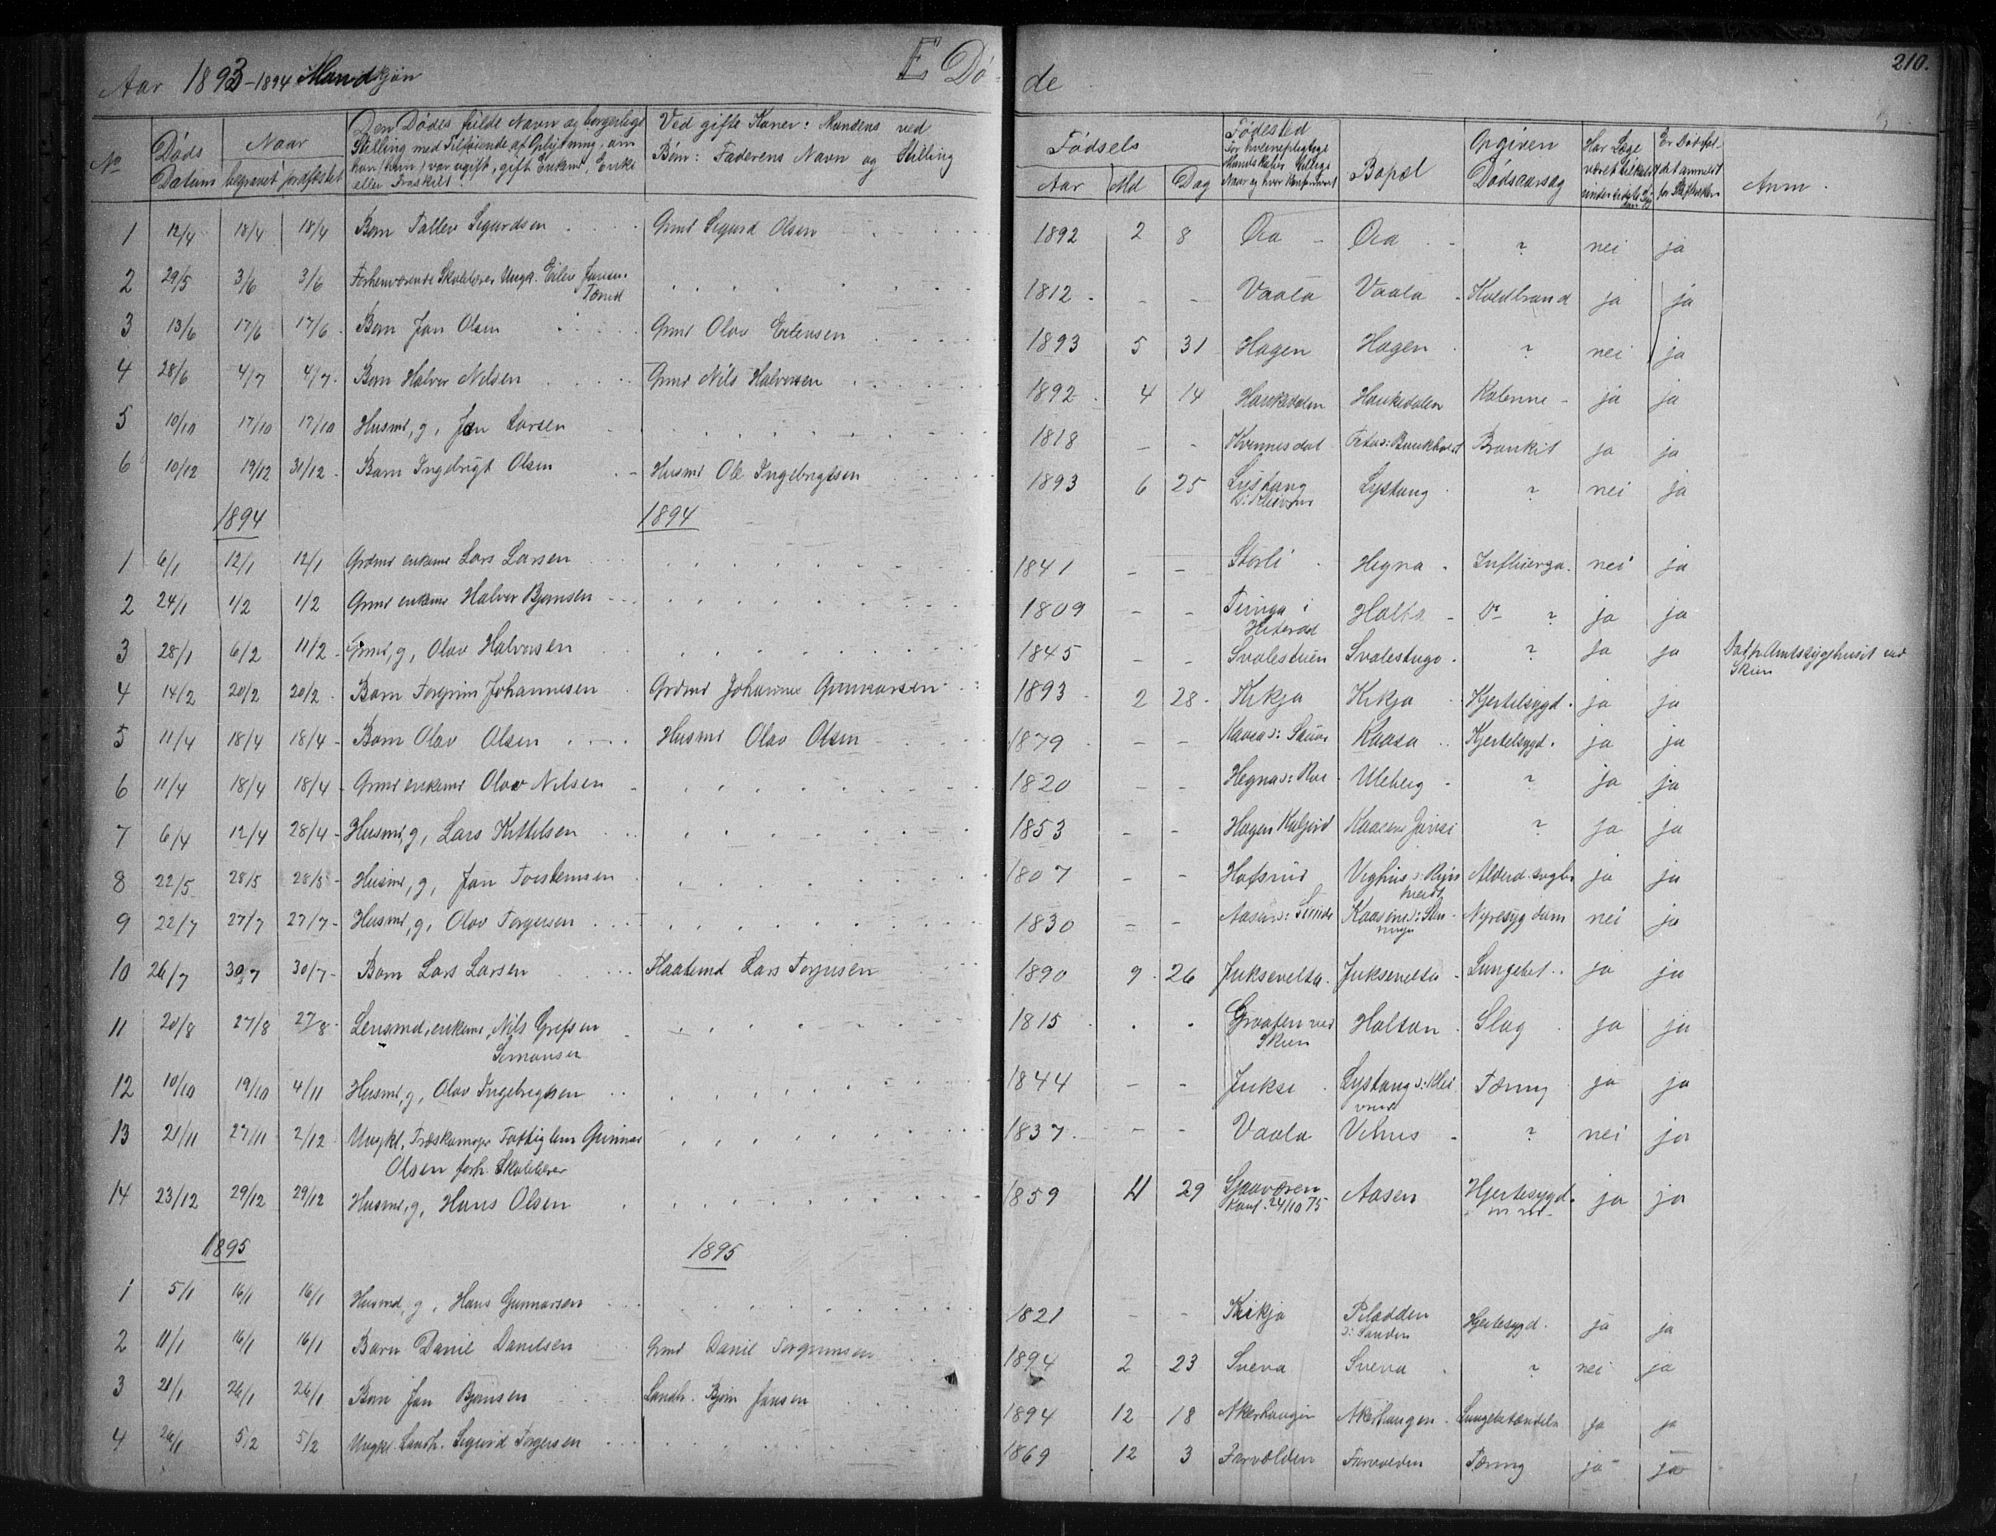 Aar 1893-1894 Mandkjøn
E. Dø-
de
210.
No
Døds Datum
Naar
begravet
jordfæstet
Den Dødes fulde Navn og borgerlige
Stilling med Tilføiende af Oplysning, om
han (hun) var ugift, gift Enkem, Enke
eller Fraskilt.
Ved gifte Koner: Mandens ved
Børn: Faderens Navn og Stilling
Fødsels
Aar Md Dag
Fødested
Bopæl
Opgiven
Dødsaarsag
Har Læge
Er Dødsfal-
det anmeldt
Anm.
1 12/4 18/4 18/4 Barn Tallev Sigurdsen Grmd Sigurd Olsen 1892 2 8 Øra Øra ? nei ja
2 29/5 3/6 3/6 Forhenværende Skolelærer Ungk. Eilev Jansen 1812 - - Vaala Vaala Koldbrand ja ja
3 13/6 17/6 17/6 Barn Jan Olsen Grmd Olav Eilevsen 1893 5 31 Hagen Hagen ? nei ja
4 28/6 4/7 4/7 Barn Halvor Nilsen Grmd Nils Halvorsen 1892 4 14 Haukedalen Haukedalen ja ja
5 10/10 17/10 17/10 Husmd, g, Jan Larsen 1818 - - Kvennesdal Bronkit ja ja
6 10/12 19/12 31/12 Barn Ingebrigt Olsen Husmd Ole Ingebrigtsen 1893 6 25 Lystang Lystang ? nei ja
1894 1894
1 6/1 12/1 12/1 Grdmd enkemd Lars Larsen 1841 - - Storli Hegna Influenza nei ja
2 24/1 1/2 1/2 Grmd enkemd Halvor Bjørnsen 1809 - - Tveinga i Hiterdal Holta Do ? ja ja
3 28/1 6/2 11/2 Grmd, g, Olav Halvorsen 1845 - - Svalestuen Svalestugo ? ja ja Død p. Amtssygehuset ved
Skien
4 14/2 20/2 20/2 Barn Torgrim Johannesen Grdmd Johannes Gunnarsen 1893 2 28 Kikja Kikja Kjertelsygd. ja ja
5 11/4 18/4 18/4 Barn Olav Olsen Husmd Olav Olsen 1879 - - Kaasa Kjertelsygd. ja ja
6 11/4 18/4 18/4 Grmd enkemd Olav Nilsen 1820 - - Hegna Uleberg ? ja ja
7 6/4 12/4 28/4 Husmd, g, Lars Kittelsen 1853 - - Hagen ? ja ja
8 22/5 28/5 28/5 Husmd, g, Jan Torstensen 1807 - - Hafsrud ja ja
9 22/7 27/7 27/7 Husmd, g, Olav Torgersen 1830 - - nei ja
10 26/7 30/7 30/7 Barn Lars Larsen Flaatmd Lars Torjusen 1890 9 26 Juksevelta Juksevelta Lungebet. ja ja
11 20/8 27/8 27/8 Lensmd, enkemd, Nils Grefsen
Simonsen 1815 Graaten ved
Skien Holtan Slag ja ja
12 10/10 19/10 4/11 Husmd, g, Olav Ingebrigtsen 1844 - - Jukse Lystang Tæring ja ja
13 21/11 27/11 2/12 Ungkl. Træskomager Fattiglem Gunnar
Olsen forh. Skolelærer 1837 - - Vaala Vihus ? nei ja
14 23/12 29/12 29/12 Husmd, g, Hans Olsen 1859 4 29 Sjaaværen
Konf. 24/10 75 Aasen Hjertesygd. ja ja
1895 1895
1 5/1 16/1 16/1 Husmd, g, Hans Gunnarsen 1821 - - Kikja Piladden
o: Sanden Hjertesygd. ja ja
2 11/1 16/1 16/1 Barn Daniel Danielsen Grmd Daniel Torgrimsen 1894 2 23 Sneva Sneva ? nei ja
3 21/1 26/1 26/1 Barn Jan Bjørnsen Landh. Bjørn Jansen 1894 12 18 Akerhaugen Akerhaugen Lungebetændelse ja ja
4 26/1 5/2 5/2 Ungkl. Landh. Sigurd Torgersen 1869 12 3 Farvolden Farvolden Tæring ja ja